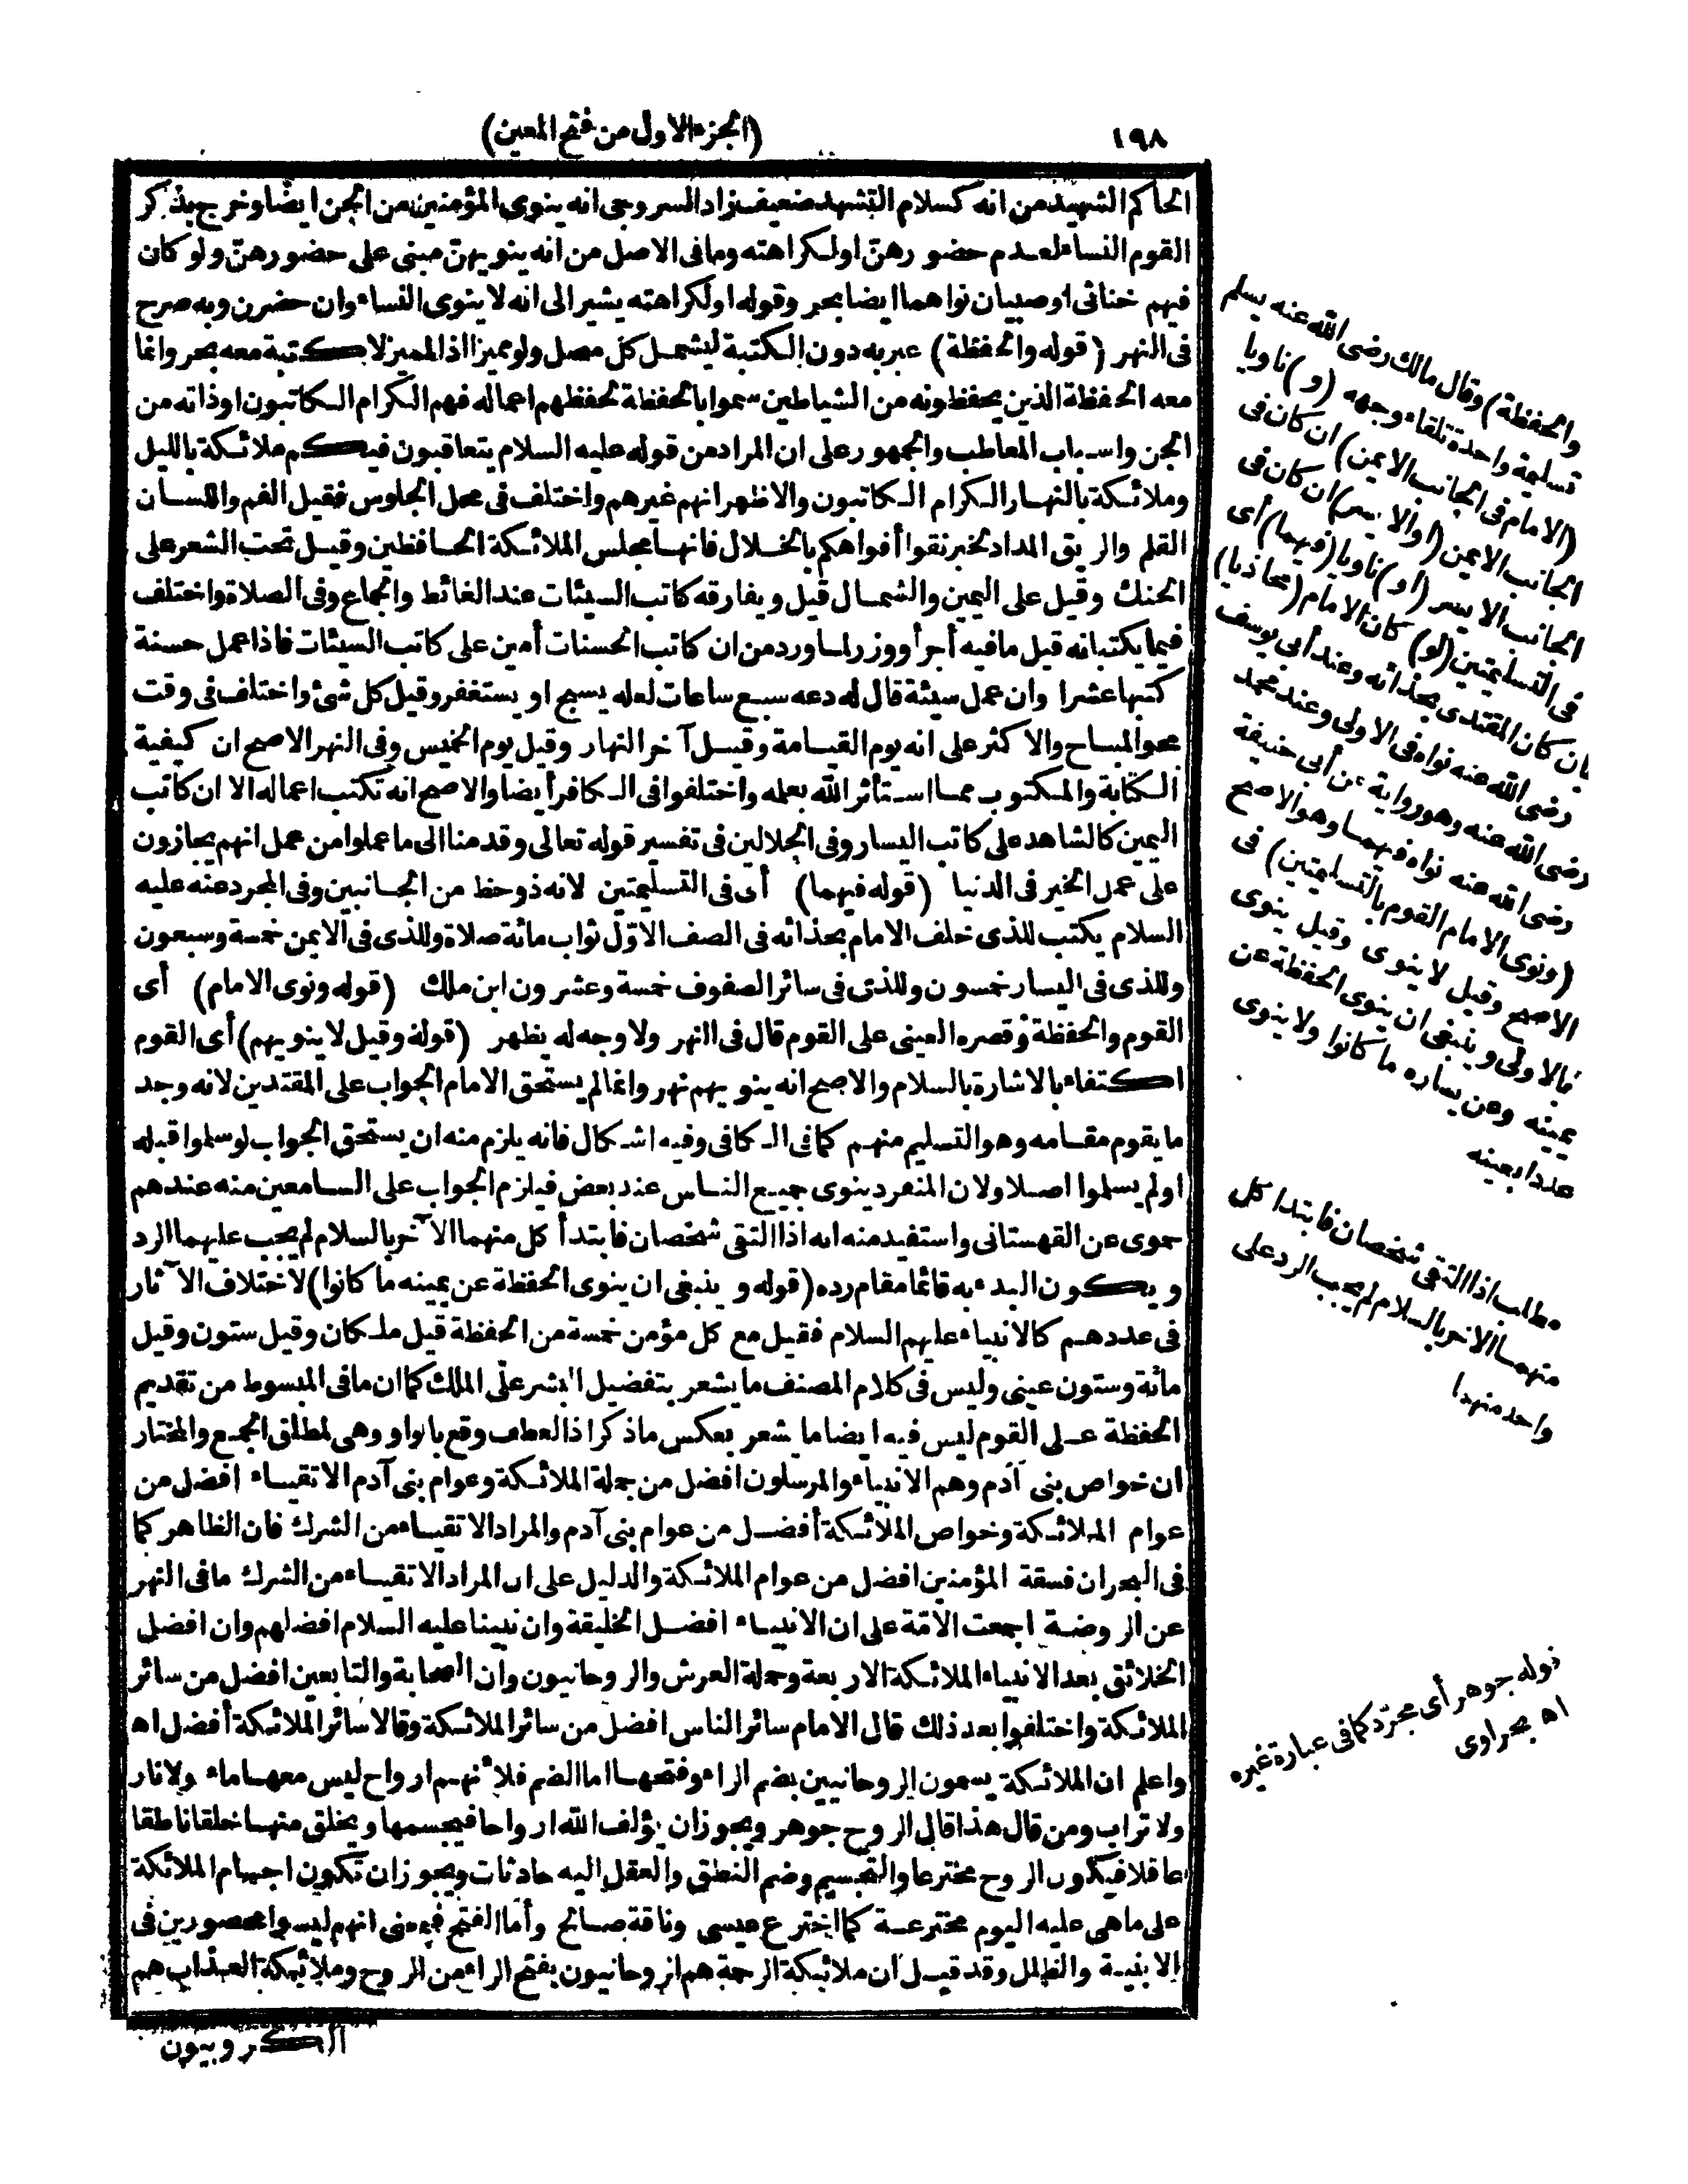 ١٩٨
(الجزء الاول من فتح المعين)
الحاكم الشهيد من انه كسلام التشهد ضعيف زاد السروجى انه ينوى المؤمنين من الجن ايضا وخرج بذكر
القوم النساء لعدم حضورهن اولكراهته ومافى الاصل من انه ينويهن مبنى على حضورهن ولو كان
فيهم خناثى اوصبيان نواهما ايضا بحر وقوله اولكراهته يشير الى انه لا ينوى النساء وان حضرن وبه صرح
فى النهر (قوله والحفظة) عبر به دون الكتبة ليشمل كل مصل ولو مميزا اذ المميز لا كتبة معه بحر وانما
معه الحفظة الذين يحفظونه من الشياطين سموا بالحفظة لحفظهم اعماله فهم الكرام الكاتبون اوذاته من
الجن واسباب المعاطب والجمهور على ان المراد من قوله عليه السلام يتعاقبون فيكم ملائكة بالليل
وملائكة بالنهار الكرام الكاتبون والاظهر انهم غيرهم واختلف فى محل الجلوس فقيل الفم واللسان
القلم والريق المداد لخبر نقوا أفواهكم بالخلال فانها مجلس الملائكة الحافظين وقيل تحت الشعر على
الحنك وقيل على اليمين والشمال قيل ويفارقه كاتب السيئات عند الغائط والجماع وفى الصلاة واختلف
فيما يكتبانه قيل مافيه أجر أووزر لما ورد من ان كاتب الحسنات أمين على كاتب السيئات فاذا عمل حسنة
كتبها عشرا وان عمل سيئة قال له دعه سبع ساعات لعله يسبح او يستغفر وقيل كل شئ واختلف فى وقت
محو المباح والاكثر على انه يوم القيامة وقيل آخر النهار وقيل يوم الخميس وفى النهر الاصح ان كيفية
الكتابة والمكتوب مما استأثر الله بعلمه واختلفوا فى الكافر أيضا والاصح انه تكتب اعماله الا ان كاتب
اليمين كالشاهد على كاتب اليسار وفى الجلالين فى تفسير قوله تعالى وقدمنا الى ما عملوا من عمل انهم يجازون
على عمل الخير فى الدنيا (قوله فيهما) أى فى التسليمتين لانه ذوحظ من الجانبين وفى المجرد عنه عليه
السلام يكتب للذى خلف الامام بحذائه فى الصف الاوّل ثواب مائة صلاة وللذى فى الايمن خمسة وسبعون
وللذى فى اليسار خمسون وللذى فى سائر الصفوف خمسة وعشرون ابن ملك (قوله ونوى الامام) أى
القوم والحفظة وقصره العينى على القوم قال فى النهر ولا وجه له يظهر (قوله وقيل لا ينويهم) أى القوم
اكتفاء بالاشارة بالسلام والاصح انه ينويهم نهر وانما لم يستحق الامام الجواب على المقتدين لانه وجد
ما يقوم مقامه وهو التسليم منهم كمافى الكافى وفيه اشكال فانه يلزم منه ان يستحق الجواب لو سلموا قبله
اولم يسلموا اصلا ولان المنفرد ينوى جميع الناس عند بعض فيلزم الجواب على السامعين منه عندهم
حموى عن القهستانى واستفيد منه انه اذا التقى شخصان فابتدأ كل منهما الآخر بالسلام لم يجب عليهما الرد
ويكون البدء به قائما مقام رده (قوله و ينبغى ان ينوى الحفظة عن يمينه ما كانوا) لاختلاف الآثار
فى عددهم كالانبياء عليهم السلام فقيل مع كل مؤمن خمسة من الحفظة قيل ملكان وقيل ستون وقيل
مائة وستون عينى وليس فى كلام المصنف ما يشعر بتفضيل البشر على الملك كما ان مافى المبسوط من تقديم
الحفظة على القوم ليس فيه ايضا ما شعر بعكس ماذكر اذ العطف وقع بالواو وهى لمطلق الجمع والمختار
ان خواص بنى آدم وهم الانبياء والمرسلون افضل من جملة الملائكة وعوام بنى آدم الاتقياء افضل من
عوام الملائكة وخواص الملائكة أفضل من عوام بنى آدم والمراد الاتقياء من الشرك فان الظاهر كما
فى البحر ان فسقة المؤمنين افضل من عوام الملائكة والدليل على ان المراد الاتقياء من الشرك مافى النهر
عن الروضة اجمعت الامّة على ان الانبياء افضل الخليقة وان نبينا عليه السلام افضلهم وان افضل
الخلائق بعد الانبياء الملائكة الاربعة وحملة العرش والروحانيون وان الصحابة والتابعين افضل من سائر
الملائكة واختلفوا بعد ذلك قال الامام سائر الناس افضل من سائر الملائكة وقالا سائر الملائكة أفضل اه
واعلم ان الملائكة يسمون الروحانيين بضم الراء وفتحها اما الضم فلأنهم ارواح ليس معها ماء ولا نار
ولا تراب ومن قال هذا قال الروح جوهر ويجوز ان يؤلف الله ارواحا فيجسمها ويخلق منها خلقا ناطقا
عاقلا فيكون الروح مخترعا والتجسيم وضم النطق والعقل اليه حادثات ويجوز ان تكون اجسام الملائكة
على ماهى عليه اليوم مخترعة كما اخترع عيسى وناقة صالح وأما الفتح فبمعنى انهم ليسوا محصورين فى
الابنية والظلل وقد قيل ان ملائكة الرحمة هم الروحانيون بفتح الراء من الروح وملائكة العذاب هم
الكروبيون
والحفظة) وقال مالك رضى الله عنه يسلم
تسليمة واحدة تلقاء وجهه (و) ناويا
(الامام فى الجانب الايمن) ان كان فى
الجانب الايمن (اوالايسر) ان كان فى
الجانب الايسر (او) ناويا (فيهما) أى
فى التسليمتين (لو) كان الامام (محاذيا)
بان كان المقتدى بحذائه وعند أبى يوسف
رضى الله عنه نواه فى الاولى وعند محمد
رضى الله عنه وهو رواية عن أبى حنيفة
رضى الله عنه نواه فيهما وهو الاصح
(ونوى الامام القوم بالتسليمتين) فى
الاصح وقيل لا ينوى وقيل ينوى
بالاولى وينبغى ان ينوى الحفظة عن
يمينه وعن يساره ما كانوا ولا ينوى
عددا بعينه
مطلب اذا التقى شخصان فابتدا كل
منهما الاخر بالسلام لم يجب الرد على
واحد منهما
قوله جوهر أى مجرّد كمافى عبارة غيره
اه بحراوى